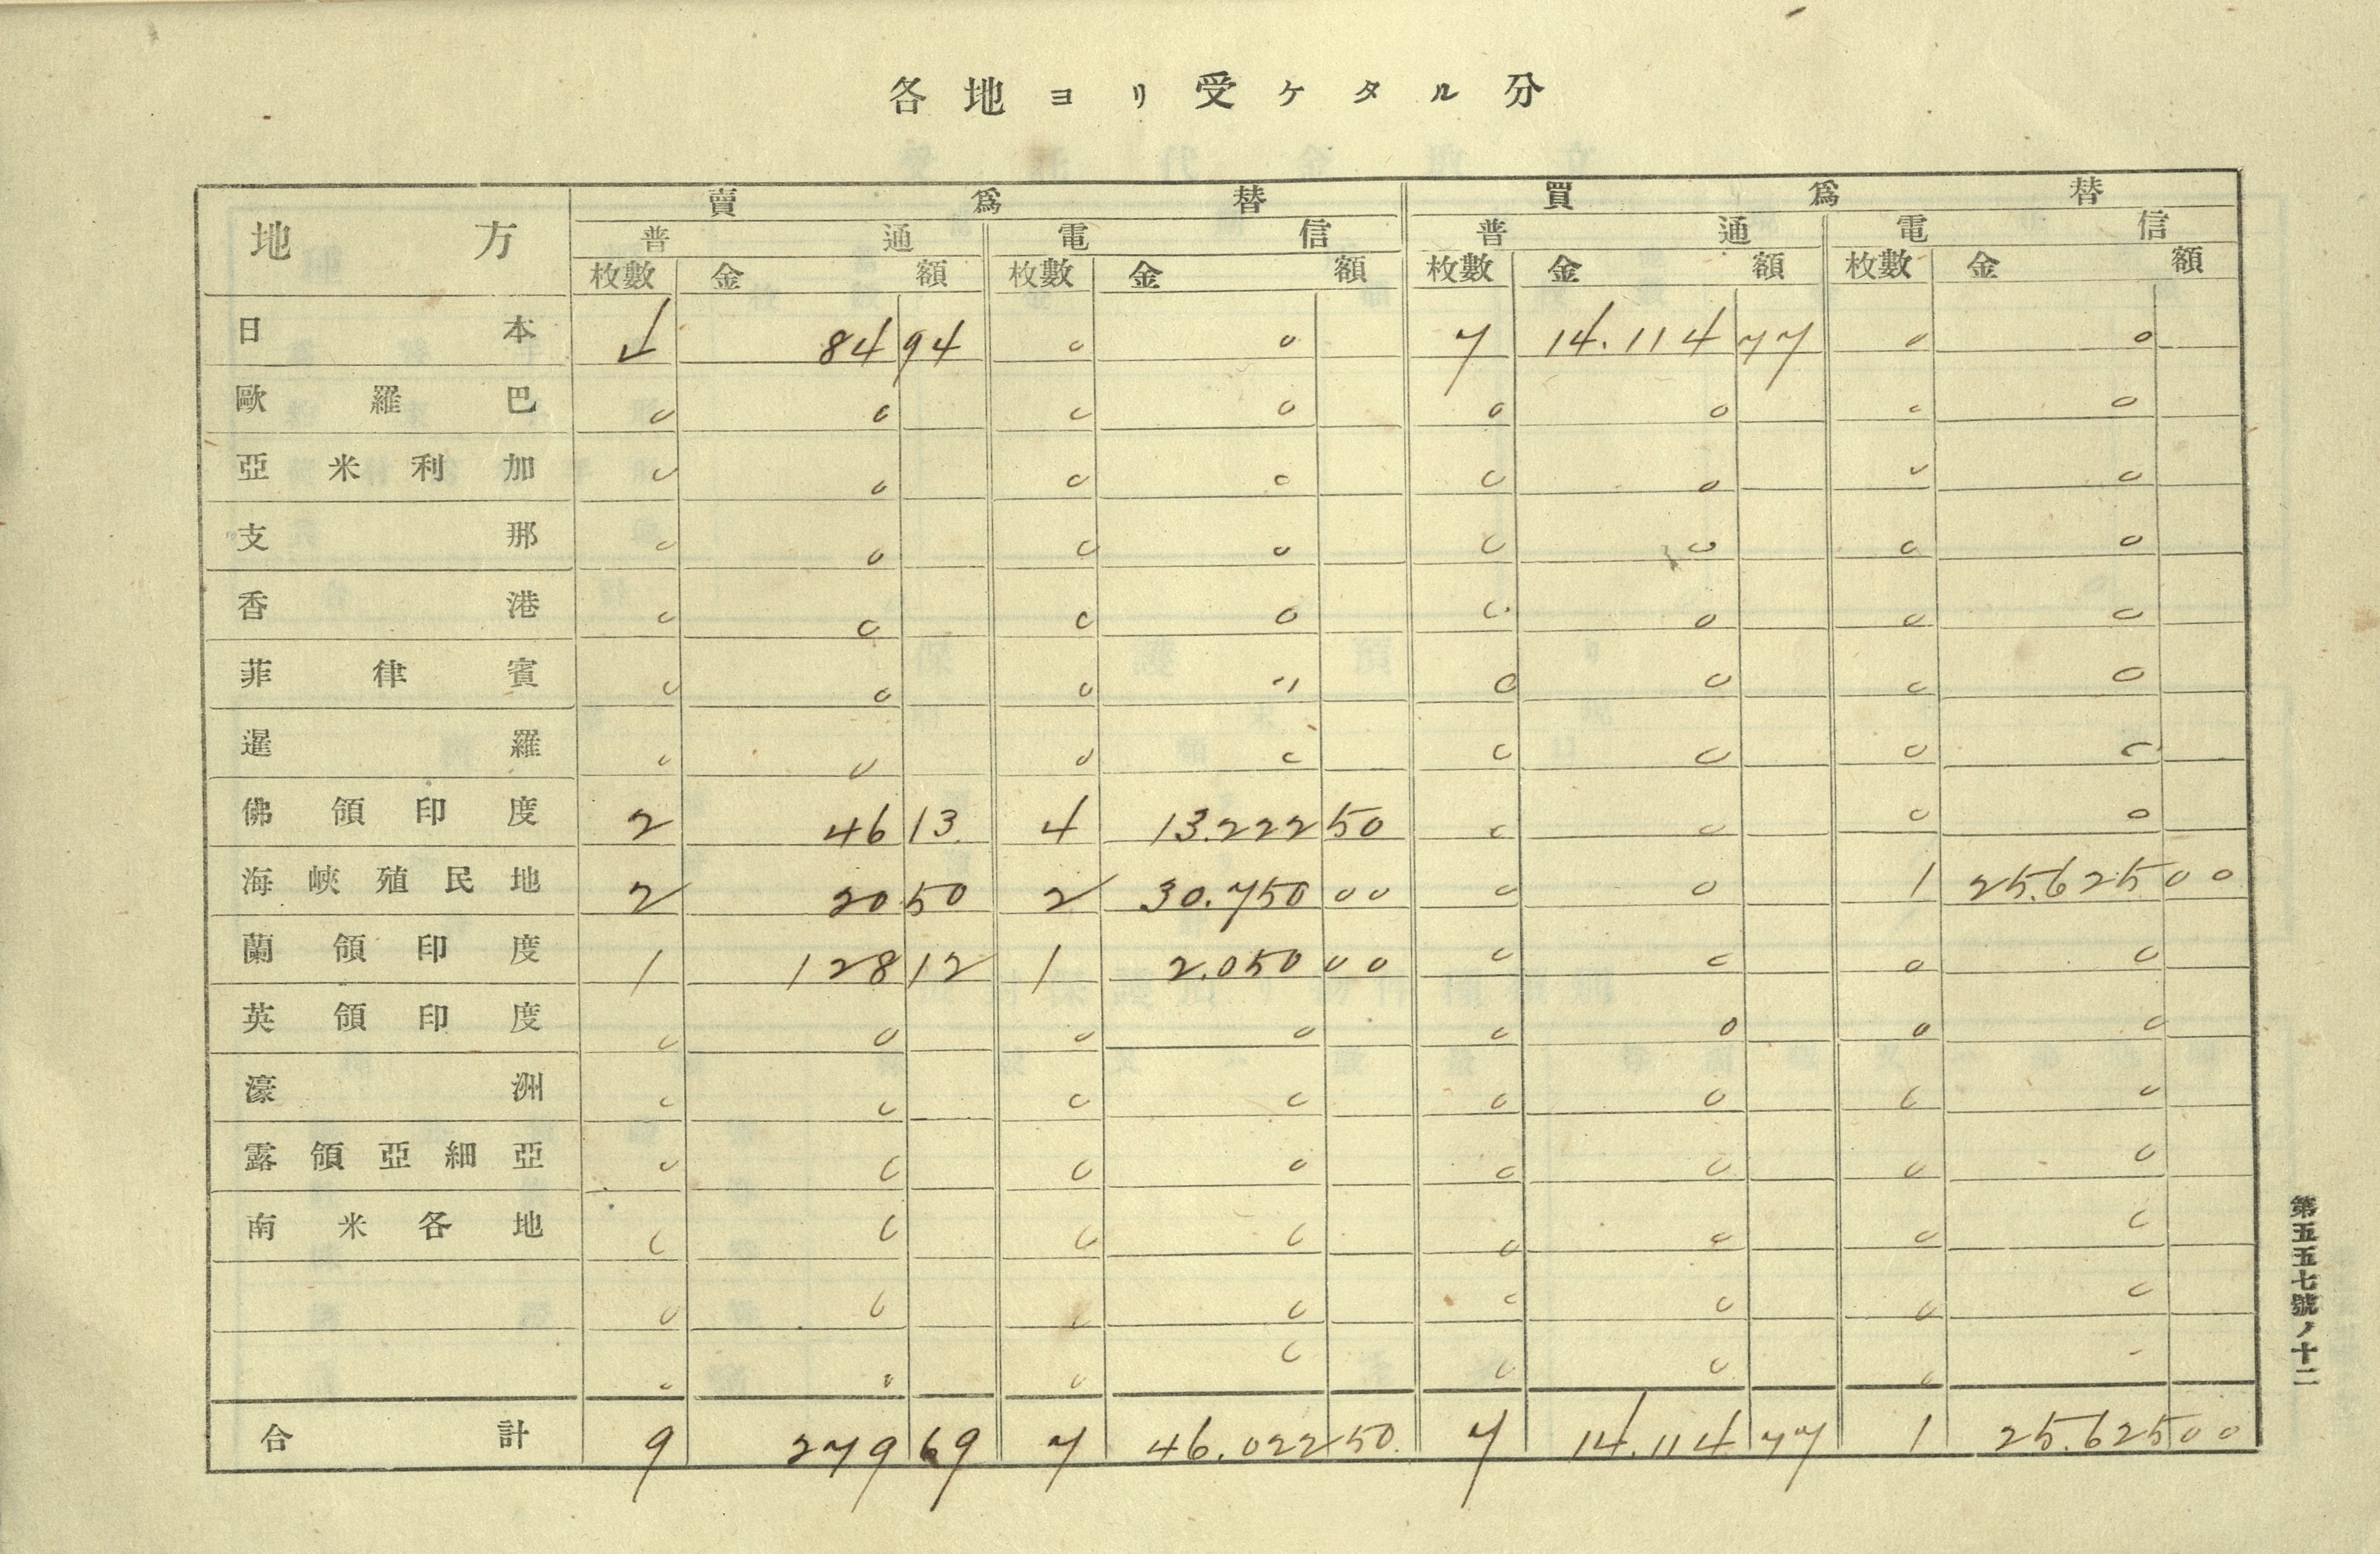 各地ヨリ受ケタル分
地方 賣為替 買為替
普通 電信 普通 電信
枚數 金額 枚數 金額 枚數 金額 枚數 金額
日本 4 84 94 0 0 7 14.114 77 0 0
歐羅巴 0 0 0 0 0 0 0 0
亞米利加 0 0 0 0 0 0 0 0
支那 0 0 0 0 0 0 0 0
香港 0 0 0 0 0 0 0 0
菲律賓 0 0 0 0 0 0 0 0
暹羅 0 0 0 0 0 0 0 0
佛領印度 2 46 13 4 13.222 50 0 0 0 0
海峽殖民地 2 20 50 2 30.750 00 0 0 1 25.625 00
蘭領印度 1 128 12 1 2.050 00 0 0 0 0
英領印度 0 0 0 0 0 0 0 0
濠洲 0 0 0 0 0 0 0 0
露領亞細亞 0 0 0 0 0 0 0 0
南米各地 0 0 0 0 0 0 0 0
0 0 0 0 0 0 0 0
0 0 0 0 0 0 0
合計 9 279 69 7 46.022 50 7 14.114 77 1 25.625 00
第五五七號ノ十二